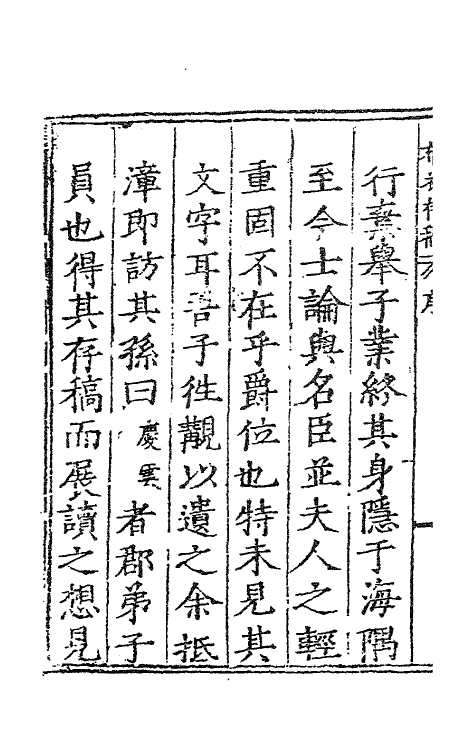 行棄舉子業終其身隱于海隅
至今士論與名臣並夫人之輕
重固不在乎爵位也特未見其
文字耳吾子徃覯以遺之余抵
漳即訪其孫曰慶雲者郡弟子
員也得其存稿而展讀之想見